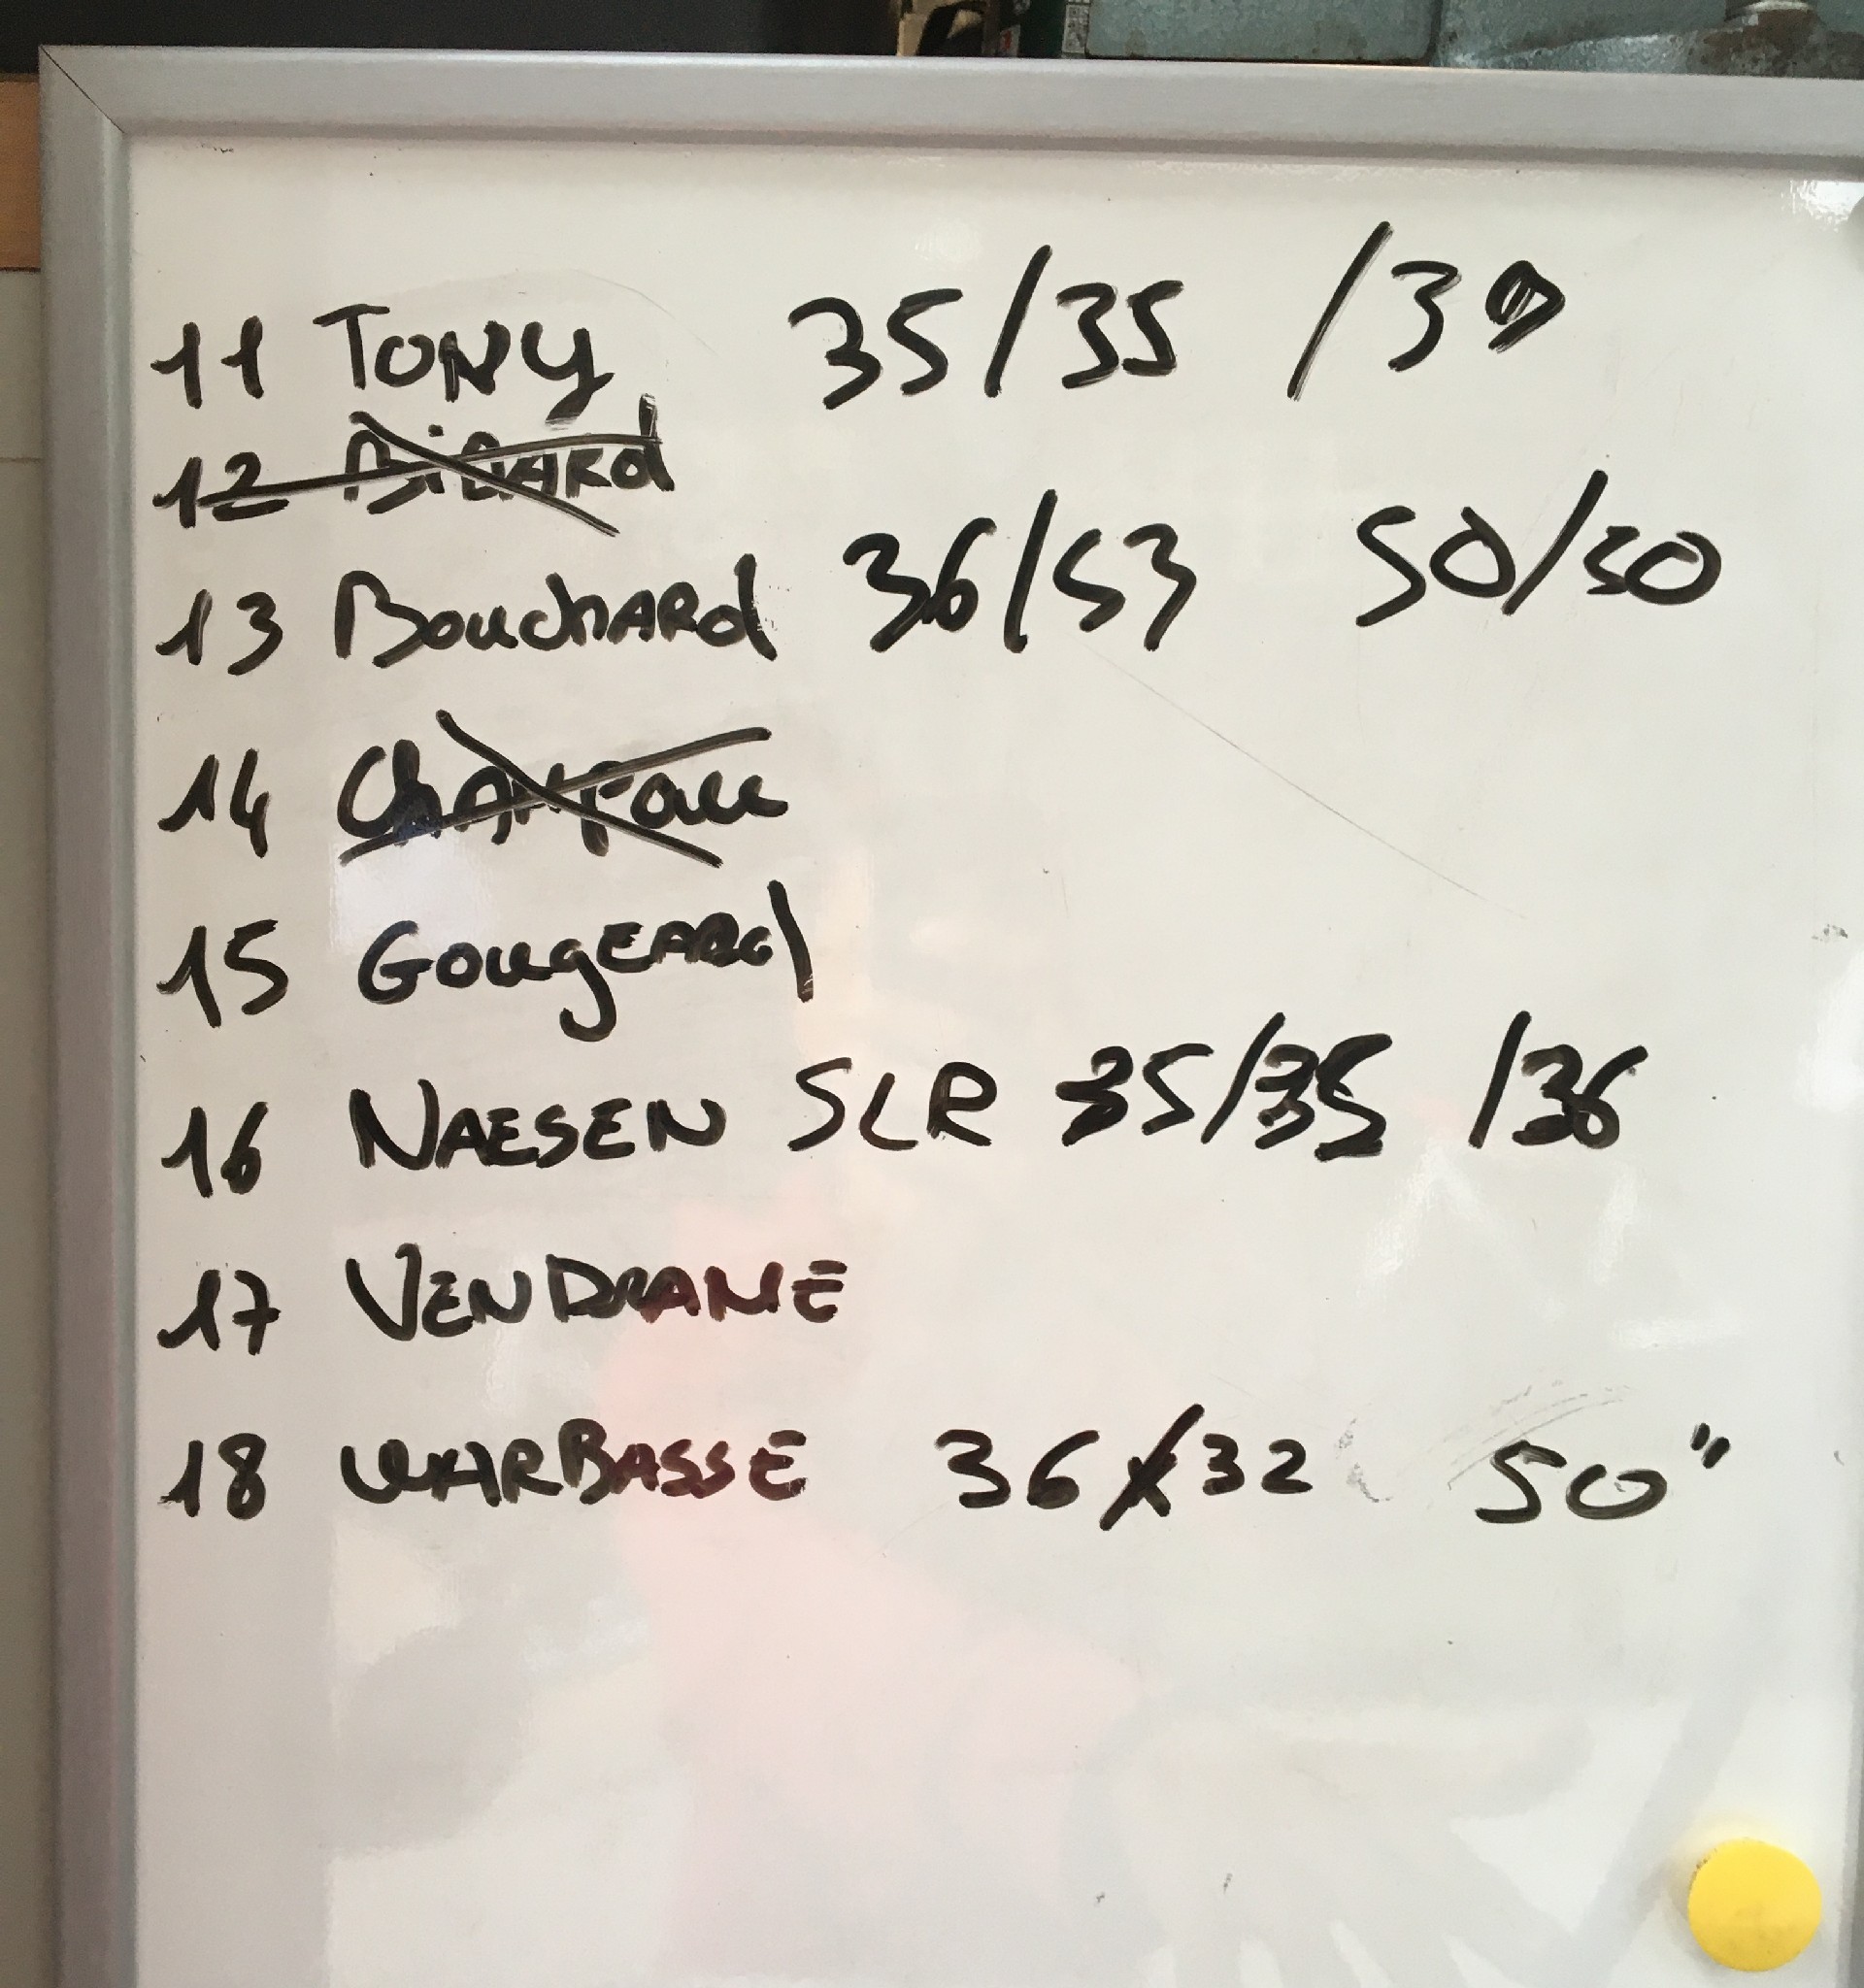 11 TONY 35/35 /39
12
13 BouchARd 36/53 50/50
14
15 GougEARd
16 NAESEN SLR 35/35 /36
17 VENDRAME
18 WARBASSE 36/32 50"